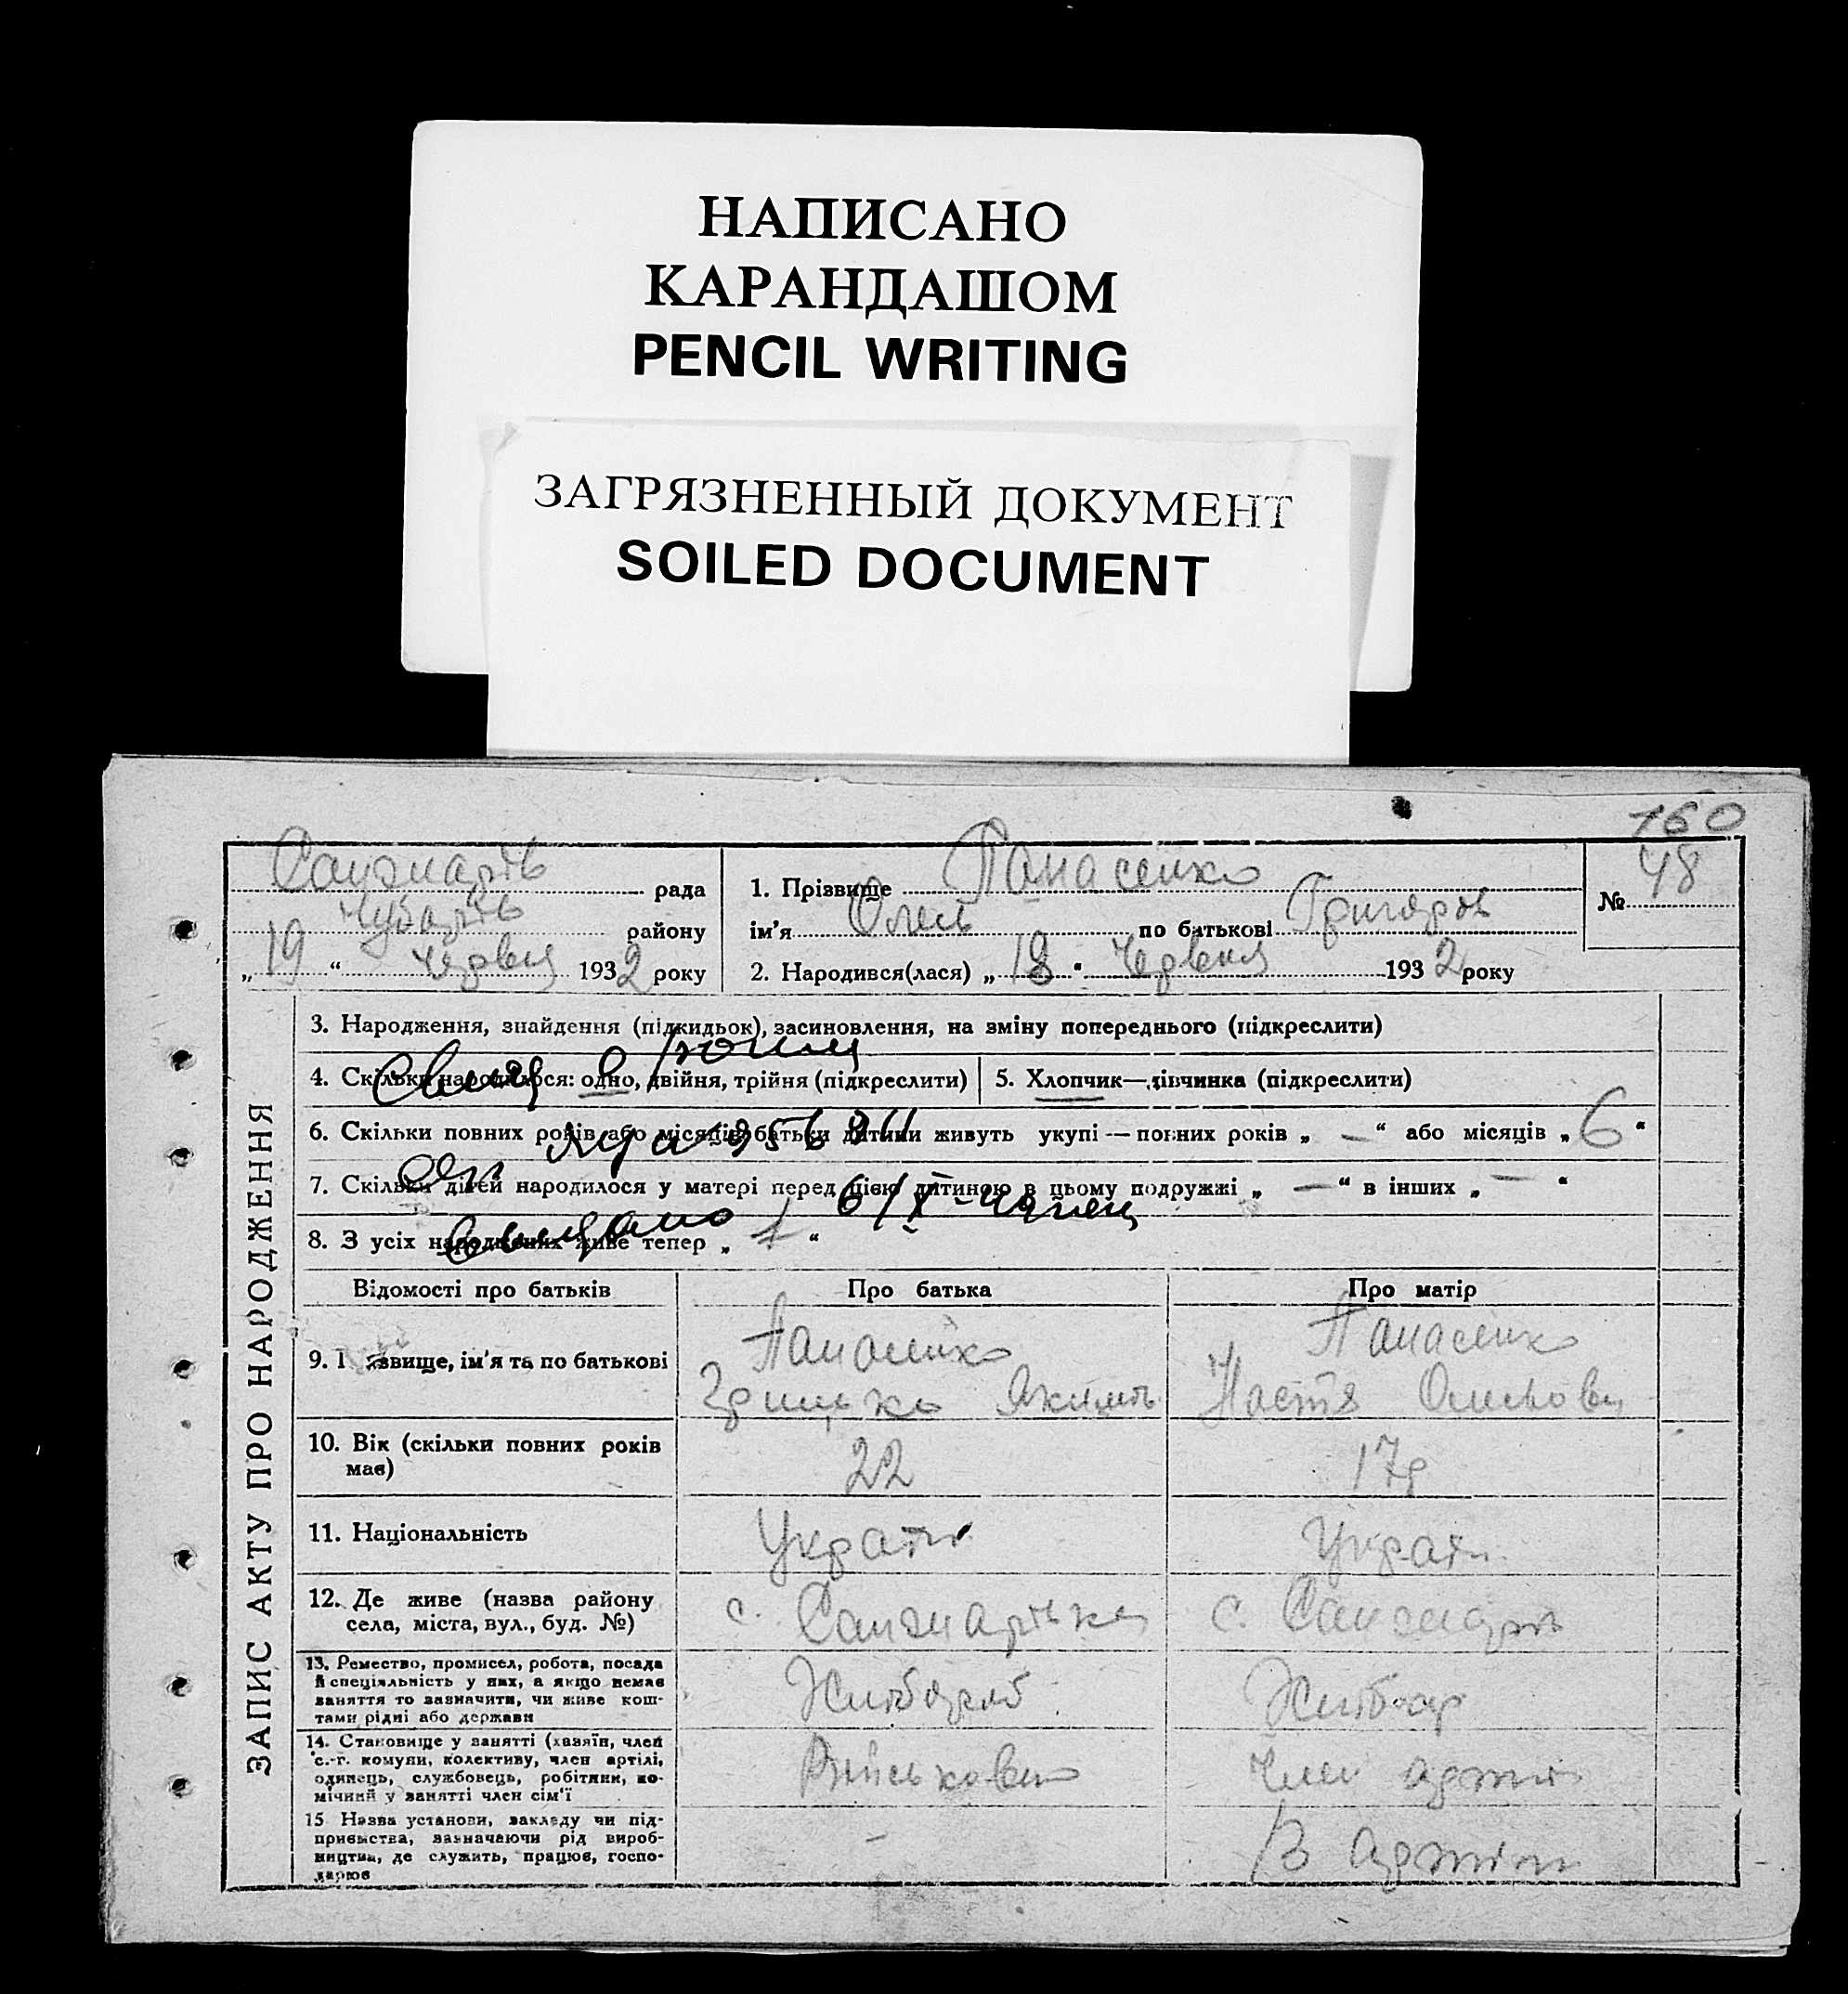 НАПИСАНО
КАРАНДАШОМ
PENCIL WRITING
ЗАГРЯЗНЕННЫЙ ДОКУМЕНТ
SOILED DOCUMENT
160
рада
1. Прізвище Панасенко
№ 48
району
ім'я Олесь по батькові Григоров
„19“ Червня 1932 року
2. Народився(лася) „18“ Червня 1932 року
ЗАПИС АКТУ ПРО НАРОДЖЕННЯ
3. Народження, знайдення (підкидьок), засиновлення, на зміну попереднього (підкреслити)
4. Скільки народилося: одно, двійня, трійня (підкреслити)
5. Хлопчик—дівчинка (підкреслити)
6. Скільки повних років або місяців батьки дитини живуть укупі — повних років „ — “ або місяців „ 6 “
7. Скільки дітей народилося у матері перед цією дитиною в цьому подружжі „ — “ в інших „ — “
8. З усіх народжених живе тепер „ 1 “
Відомості про батьків
Про батька
Про матір
9. Прізвище, ім'я та по батькові
Панасенко
Грицько Якимов
Панасенко
Настя
10. Вік (скільки повних років має)
22
17
11. Національність
Украін
Украін
12. Де живе (назва району
села, міста, вул., буд. №)
с.
с.
13. Ремество, промисел, робота, посада
й спеціяльність у них, а якщо немає
заняття то зазначити, чи живе кош-
тами рідні або держави
Хлібороб
Хлібор
14. Становище у занятті (хазяїн, член
с.-г. комуни, колективу, член артілі,
одинець, службовець, робітник, по-
мічний у занятті член сім'ї
Член артіл
15 Назва установи, закладу чи під-
приємства, зазначаючи рід вироб-
ництва, де служить, працює, госпо-
дарює
–
В артіли